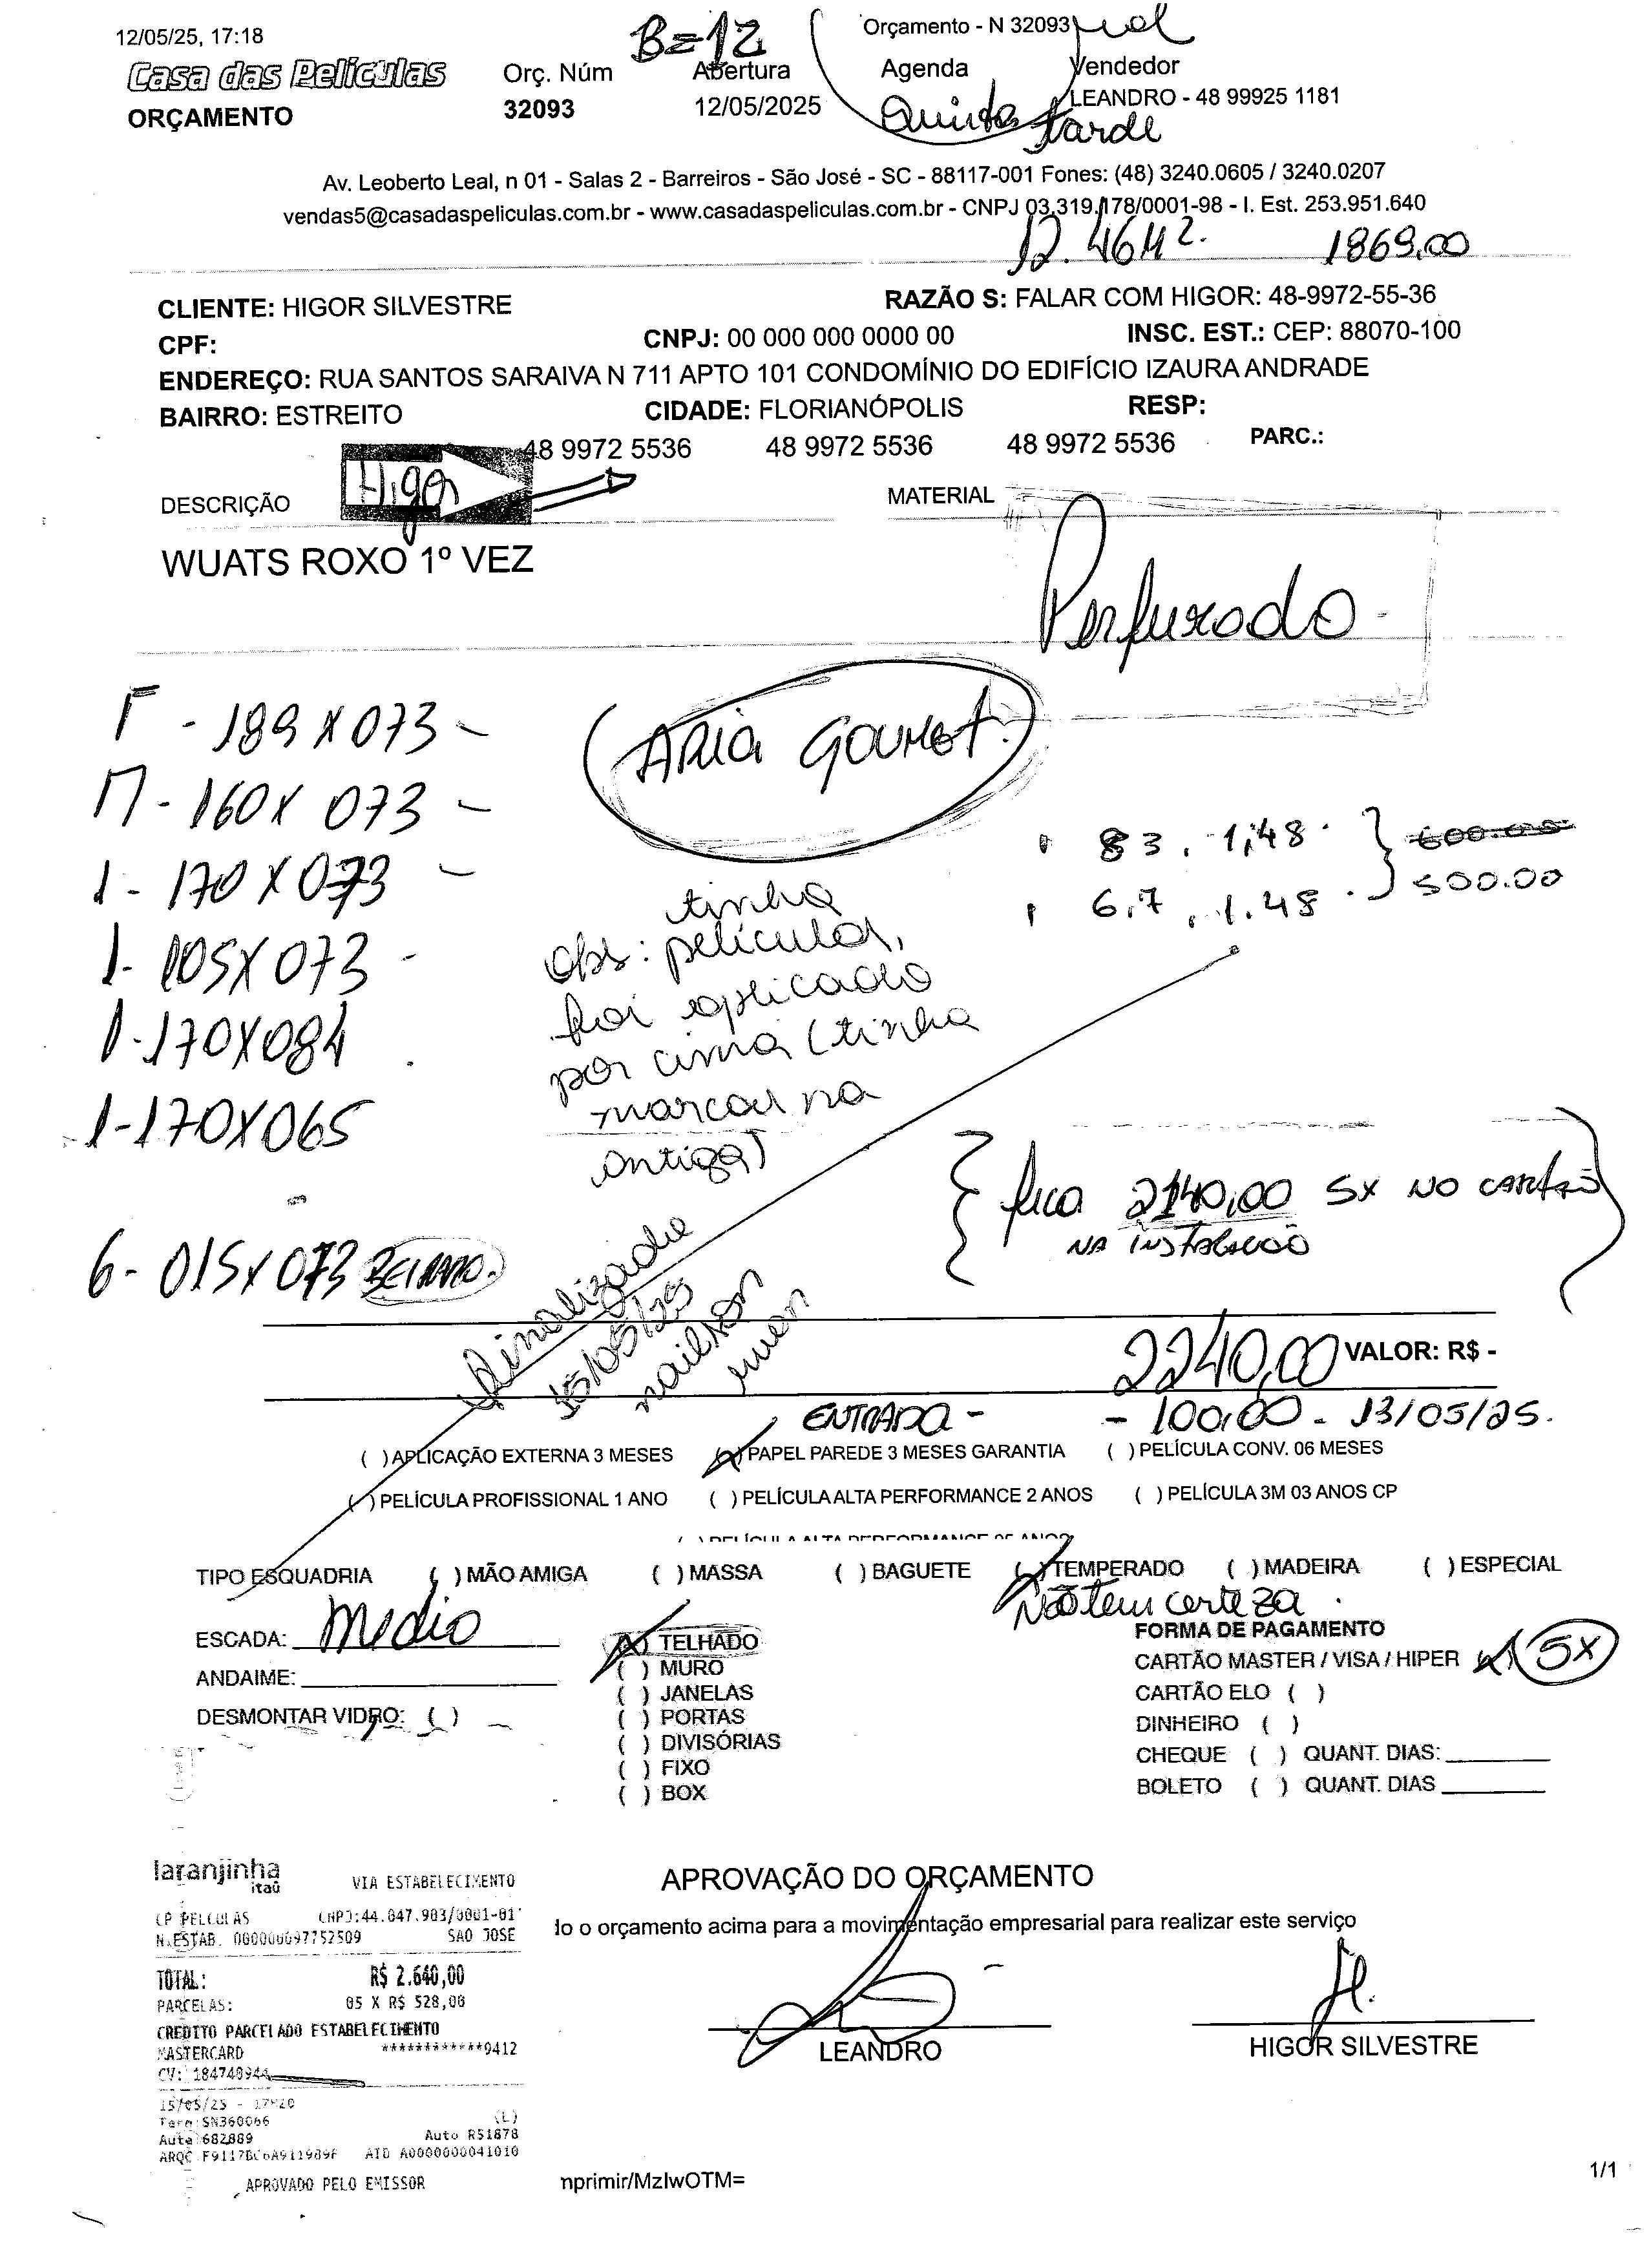 12/05/25, 17:18
B=12
Orçamento - N 32093
Casa das Películas
Orç. Núm
Abertura
Agenda
Vendedor
ORÇAMENTO
32093
12/05/2025
Quinta tarde
LEANDRO - 48 99925 1181
Av. Leoberto Leal, n 01 - Salas 2 - Barreiros - São José - SC - 88117-001 Fones: (48) 3240.0605 / 3240.0207
vendas5@casadaspeliculas.com.br - www.casadaspeliculas.com.br - CNPJ 03.319.178/0001-98 - I. Est. 253.951.640
12.46M². 1869,00
CLIENTE: HIGOR SILVESTRE
RAZÃO S: FALAR COM HIGOR: 48-9972-55-36
CPF:
CNPJ: 00 000 000 0000 00
INSC. EST.: CEP: 88070-100
ENDEREÇO: RUA SANTOS SARAIVA N 711 APTO 101 CONDOMÍNIO DO EDIFÍCIO IZAURA ANDRADE
BAIRRO: ESTREITO
CIDADE: FLORIANÓPOLIS
RESP:
48 9972 5536 48 9972 5536 48 9972 5536 PARC.:
Higor
DESCRIÇÃO
MATERIAL
WUATS ROXO 1º VEZ
Perfurado
- 189 X 073 -
- 160 X 073 -
1 - 170 X 073 -
1 - 105 X 073 -
1 - 170 X 084
1 - 170 X 065
6 - 015 X 073
ARIA GOURMET
83 . 1,48 } 600.00
6,7 . 1.48 . 500.00
tinha
obs: película,
foi aplicado
por cima (tinha
marcar na
antiga)
fica 2140,00 5X NO CARTÃO
NA INSTALAÇÃO
Finalizado
15/05/25
2240,00 VALOR: R$ -
ENTRADA - - 100,00 - 13/05/25.
( ) APLICAÇÃO EXTERNA 3 MESES (X) PAPEL PAREDE 3 MESES GARANTIA ( ) PELÍCULA CONV. 06 MESES
( ) PELÍCULA PROFISSIONAL 1 ANO ( ) PELÍCULA ALTA PERFORMANCE 2 ANOS ( ) PELÍCULA 3M 03 ANOS CP
( ) PELÍCULA ALTA PERFORMANCE 05 ANOS
TIPO ESQUADRIA ( ) MÃO AMIGA ( ) MASSA ( ) BAGUETE (X) TEMPERADO ( ) MADEIRA ( ) ESPECIAL
Não tem certeza
ESCADA: Medio
ANDAIME:
DESMONTAR VIDRO: ( )
(X) TELHADO
( ) MURO
( ) JANELAS
( ) PORTAS
( ) DIVISÓRIAS
( ) FIXO
( ) BOX
FORMA DE PAGAMENTO
CARTÃO MASTER / VISA / HIPER (X) 5X
CARTÃO ELO ( )
DINHEIRO ( )
CHEQUE ( ) QUANT. DIAS:
BOLETO ( ) QUANT. DIAS
laranjinha
itaú
VIA ESTABELECIMENTO
CP PELCULAS CNPJ:44.847.903/0001-01
N.ESTAB. 000000097752509 SAO JOSE
TOTAL: R$ 2.640,00
PARCELAS: 05 X R$ 528,00
CREDITO PARCELADO ESTABELECIMENTO
MASTERCARD ************9412
CV: 184748944
15/05/25 - 17H20
Term:SN360066 (L)
Aute 682889 Auto R51878
ARQC F9117BC6A911989F AID A0000000041010
APROVADO PELO EMISSOR
APROVAÇÃO DO ORÇAMENTO
do o orçamento acima para a movimentação empresarial para realizar este serviço
LEANDRO
HIGOR SILVESTRE
nprimir/MzIwOTM=
1/1